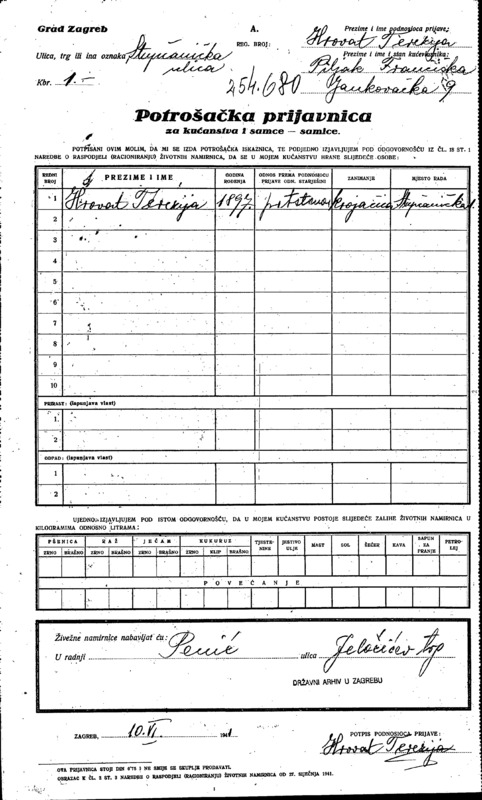 Grad Zagreb
A.
Prezime i ime podnosioca prijave:
REG. BROJ:
Hrovat Terezija
Ulica, trg ili ina oznaka Stupnička
ulica
Prezime i ime i stan kućevlasnika:
Piljak Franciska
Kbr. 1.–
254.680
Jankovačka 9
Potrošačka prijavnica
za kućanstva i samce – samice.
POTPISANI OVIM MOLIM, DA MI SE IZDA POTROŠAČKA ISKAZNICA, TE PODJEDNO IZJAVLJUJEM POD ODGOVORNOŠĆU IZ ČL. 15 ST. 1
NAREDBE O RASPODJELI (RACIONIRANJU) ŽIVOTNIH NAMIRNICA, DA SE U MOJEM KUĆANSTVU HRANE SLIJEDEĆE OSOBE:
REDNI BROJ PREZIME I IME GODINA ROĐENJA ODNOS PREMA PODNOSIOCU PRIJAVE ODN. STARJEŠINI ZANIMANJE MJESTO RADA
1 Hrovat Terezija 1897. krojačica
2
3
4
5
6
7
8
9
10
PRIRAST: (ispunjava vlast)
1
2
OTPAD: (ispunjava vlast)
1
2
UJEDNO IZJAVLJUJEM POD ISTOM ODGOVORNOŠĆU, DA U MOJEM KUĆANSTVU POSTOJE SLIJEDEĆE ZALIHE ŽIVOTNIH NAMIRNICA U
KILOGRAMIMA ODNOSNO LITRAMA:
PŠENICA RAŽ JEČAM KUKURUZ TJESTENINE JESTIVO ULJE MAST SOL ŠEĆER KAVA SAPUN ZA PRANJE PETROLEJ
ZRNO BRAŠNO ZRNO BRAŠNO ZRNO BRAŠNO ZRNO KLIP BRAŠNO
POVEĆANJE
Živežne namirnice nabavljat ću:
U radnji Penić ulica Jelačićev trg
DRŽAVNI ARHIV U ZAGREBU
ZAGREB, 10. VI. 1941
POTPIS PODNOSIOCA PRIJAVE:
Hrovat Terezija
OVA PRIJAVNICA STOJI DIN 0'75 I NE SMIJE SE SKUPLJE PRODAVATI.
OBRAZAC K ČL. 5 ST. 2 NAREDBE O RASPODJELI (RACIONIRANJU) ŽIVOTNIH NAMIRNICA OD 1941.